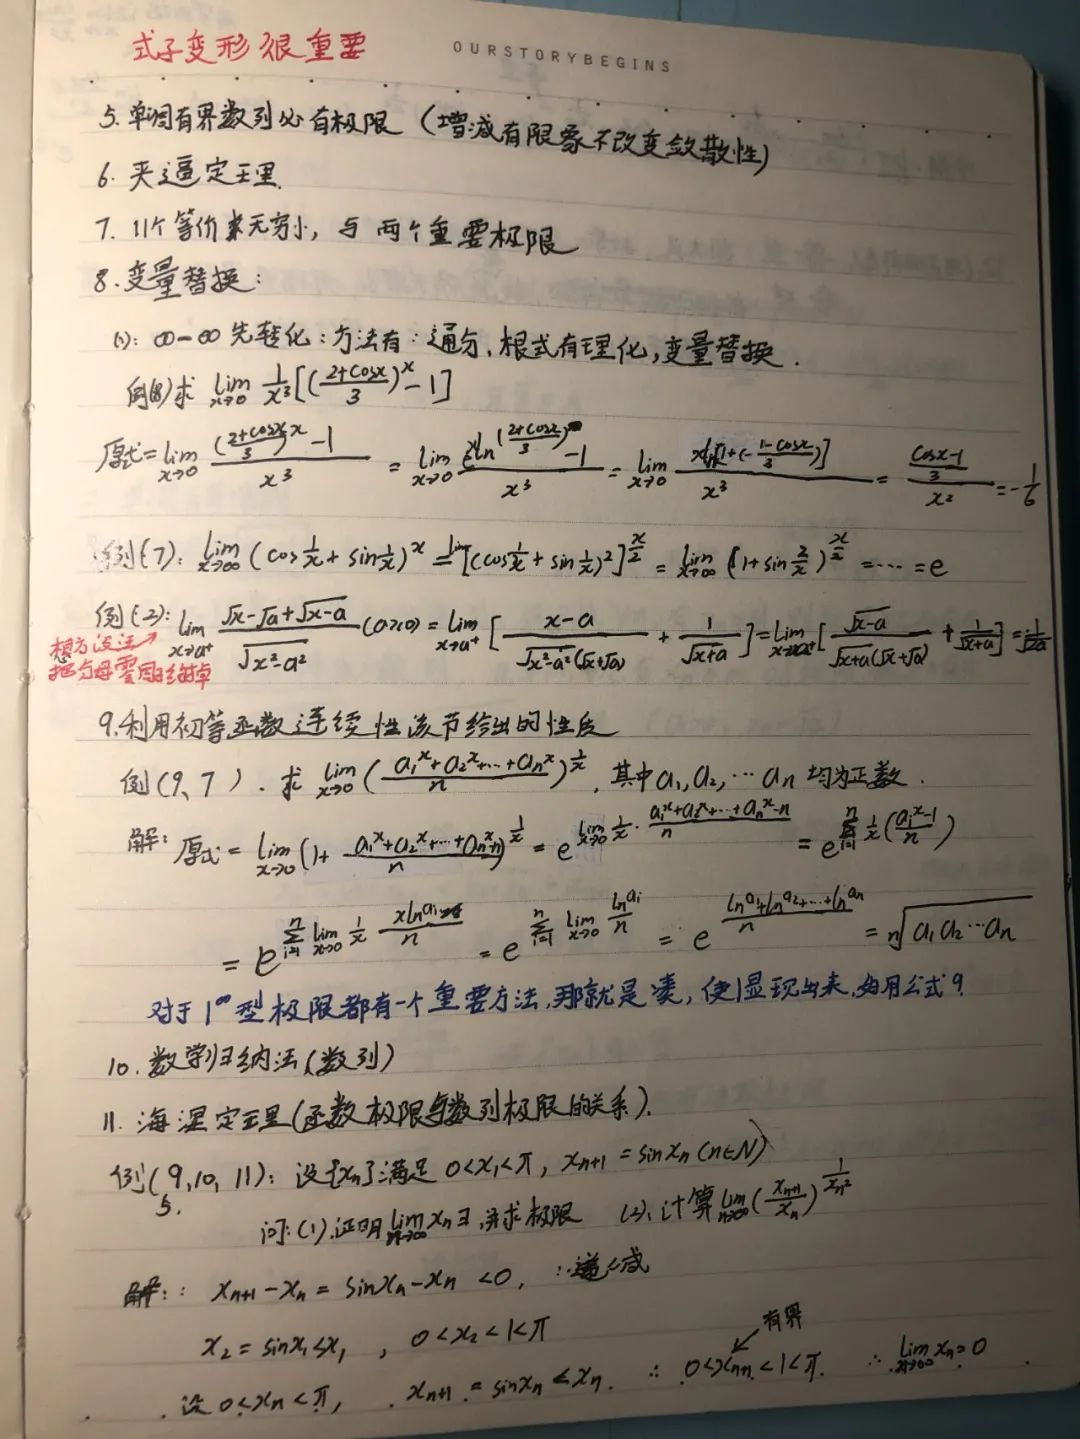 式子变形很重要
OURSTORYBEGINS
5. 单调有界数列必有极限（增减有限象不改变敛散性）
6. 夹逼定理
7. 11个等价无穷小，与两个重要极限
8. 变量替换：
(1): ∞-∞ 先转化：方法有：通分、根式有理化，变量替换.
例(8)求 lim x→0 1/x³[((2+cosx)/3)^x-1]
原式=lim x→0 (((2+cosx)/3)^x-1)/x³ = lim x→0 (e^(xln((2+cosx)/3))-1)/x³ = lim x→0 xln[1+(-(1-cosx)/3)]/x³ = ((cosx-1)/3)/x² = -1/6
例(7): lim x→∞ (cos1/x+sin1/x)^x = lim[(cos1/x+sin1/x)²]^(x/2) = lim x→∞ (1+sin2/x)^(x/2) =⋯=e
例(2): lim x→a⁺ (√x-√a+√(x-a))/√(x²-a²) (a>0) = lim x→a⁺ [(x-a)/(√(x²-a²)(√x+√a)) + 1/√(x+a)] = lim x→a⁺ [√(x-a)/(√(x+a)(√x+√a)) + 1/√(x+a)] = 1/√2a
想方设法→
把分母零因子约掉
9. 利用初等函数连续性该节给出的性质
例(9、7). 求 lim x→0 ((a₁^x+a₂^x+⋯+aₙ^x)/n)^(1/x), 其中a₁, a₂, ⋯ aₙ 均为正数.
解: 原式 = lim x→0 (1+(a₁^x+a₂^x+⋯+aₙ^x-n)/n)^(1/x) = e^(lim x→0 1/x·(a₁^x+a₂^x+⋯+aₙ^x-n)/n) = e^(Σ i=1 n 1/x((aᵢ^x-1)/n))
= e^(Σ i=1 n lim x→0 1/x (xlnaᵢ)/n) = e^(Σ i=1 n lim x→0 lnaᵢ/n) = e^((lna₁+lna₂+⋯+lnaₙ)/n) = ⁿ√(a₁a₂⋯aₙ)
对于1^∞型极限都有一个重要方法，那就是凑，使1显现出来，如用公式9.
10. 数学归纳法（数列）
11. 海涅定理（函数极限与数列极限的关系）.
例(9, 10, 11): 设{xₙ}满足 0<x₁<π, xₙ₊₁=sinxₙ(n∈N)
5.
问:(1).证明 lim n→∞ xₙ∃,并求极限 (2).计算 lim n→∞ (xₙ₊₁/xₙ)^(1/xₙ²)
解: : xₙ₊₁-xₙ=sinxₙ-xₙ<0, ∴递减
x₂=sinx₁≤x₁, 0<x₂<1<π
有界
设0<xₙ<π, xₙ₊₁=sinxₙ≤xₙ. ∴ 0<xₙ₊₁<1<π. ∴ lim n→∞ xₙ=0